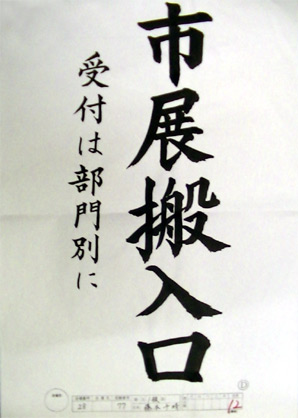 市展搬入口
受付は部門別に
28
77
12